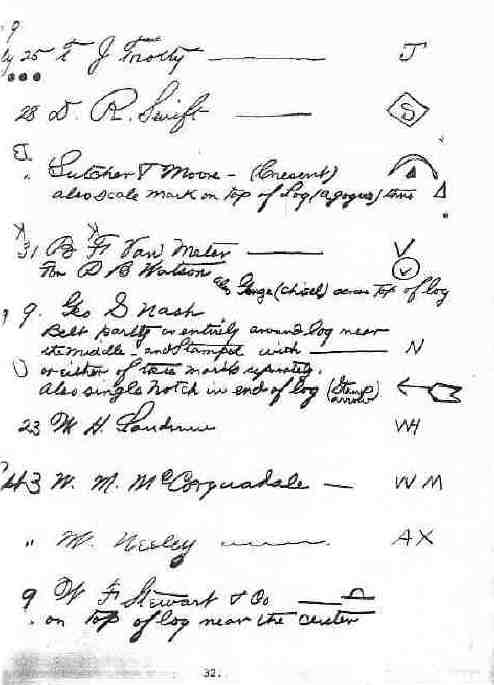 9
25 T J Trosty J
28 D. R. Swift S
" Butcher & Moore - (Cresent)
also scale mark on top of Log
31 B F Van Meter
For D B Watson
Gouge (chisel) across top of log
9. Geo S Nash
Belt partly or entirely around log near
the middle - and Stamped with N
or either of these marks seperately.
Also single notch in end of log (Stamp
arrow)
23 W H WH
3 W. M. McCorquadale — W M
" W. Neeley AX
9 W F Stewart & Co
. on top of log near the center
32.